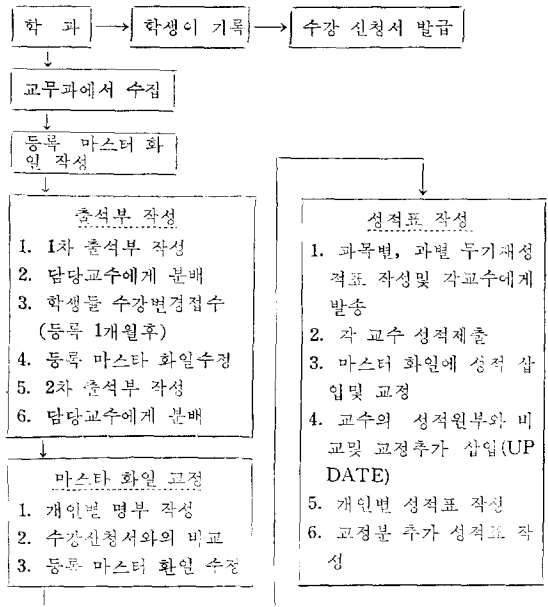 학 과
학생이 기록
수강 신청서 발급
교무과에서 수집
등록 마스터 화
일 작성
출석부 작성
1. 1차 출석부 작성
2. 담당교수에게 분배
3. 학생들 수강변경접수
(등록 1개월후)
4. 등록 마스타 화일수정
5. 2차 출석부 작성
6. 담당교수에게 분배
마스타 화일 교정
1. 개인별 명부 작성
2. 수강신청서와의 비교
3. 등록 마스터 환일 수정
성적표 작성
1. 과목별, 과별 무기재성
적표 작성및 각교수에게
발송
2. 각 교수 성적제출
3. 마스터 화일에 성적 삽
입및 교정
4. 교수의 성적원부와 비
교및 교정추가 삽입(UP
DATE)
5. 개인별 성적표 작성
6. 교정분 추가 성적표 작
성